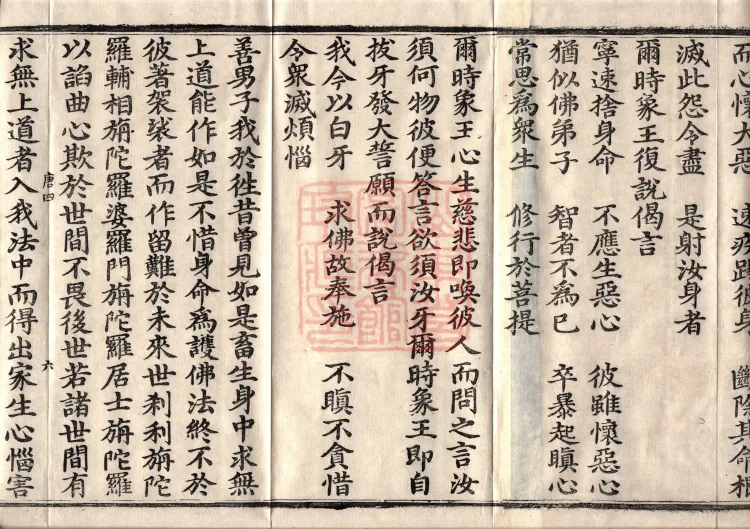 而心懷大惡 逼疾趣彼身 斷除其命根
滅此怨令盡 是射汝身者
爾時象王復說偈言
寧速捨身命 不應生惡心 彼雖懷惡心
猶似佛弟子 智者不為已 卒暴起瞋心
常思為衆生 修行於菩提
爾時象王心生慈悲即喚彼人而問之言汝
須何物彼便答言欲須汝牙爾時象王即自
拔牙發大誓願而說偈言
我今以白牙 求佛故奉施 不瞋不貪惜
今衆滅煩惱
善男子我於徃昔曾見如是畜生身中求無
上道能作如是不惜身命為護佛法終不於
彼著袈裟者而作留難於未來世刹利旃陀
羅輔相旃陀羅婆羅門旃陀羅居士旃陀羅
以諂曲心欺於世間不畏後世若諸世間有
唐四 六
求無上道者入我法中而得出家生心惱害